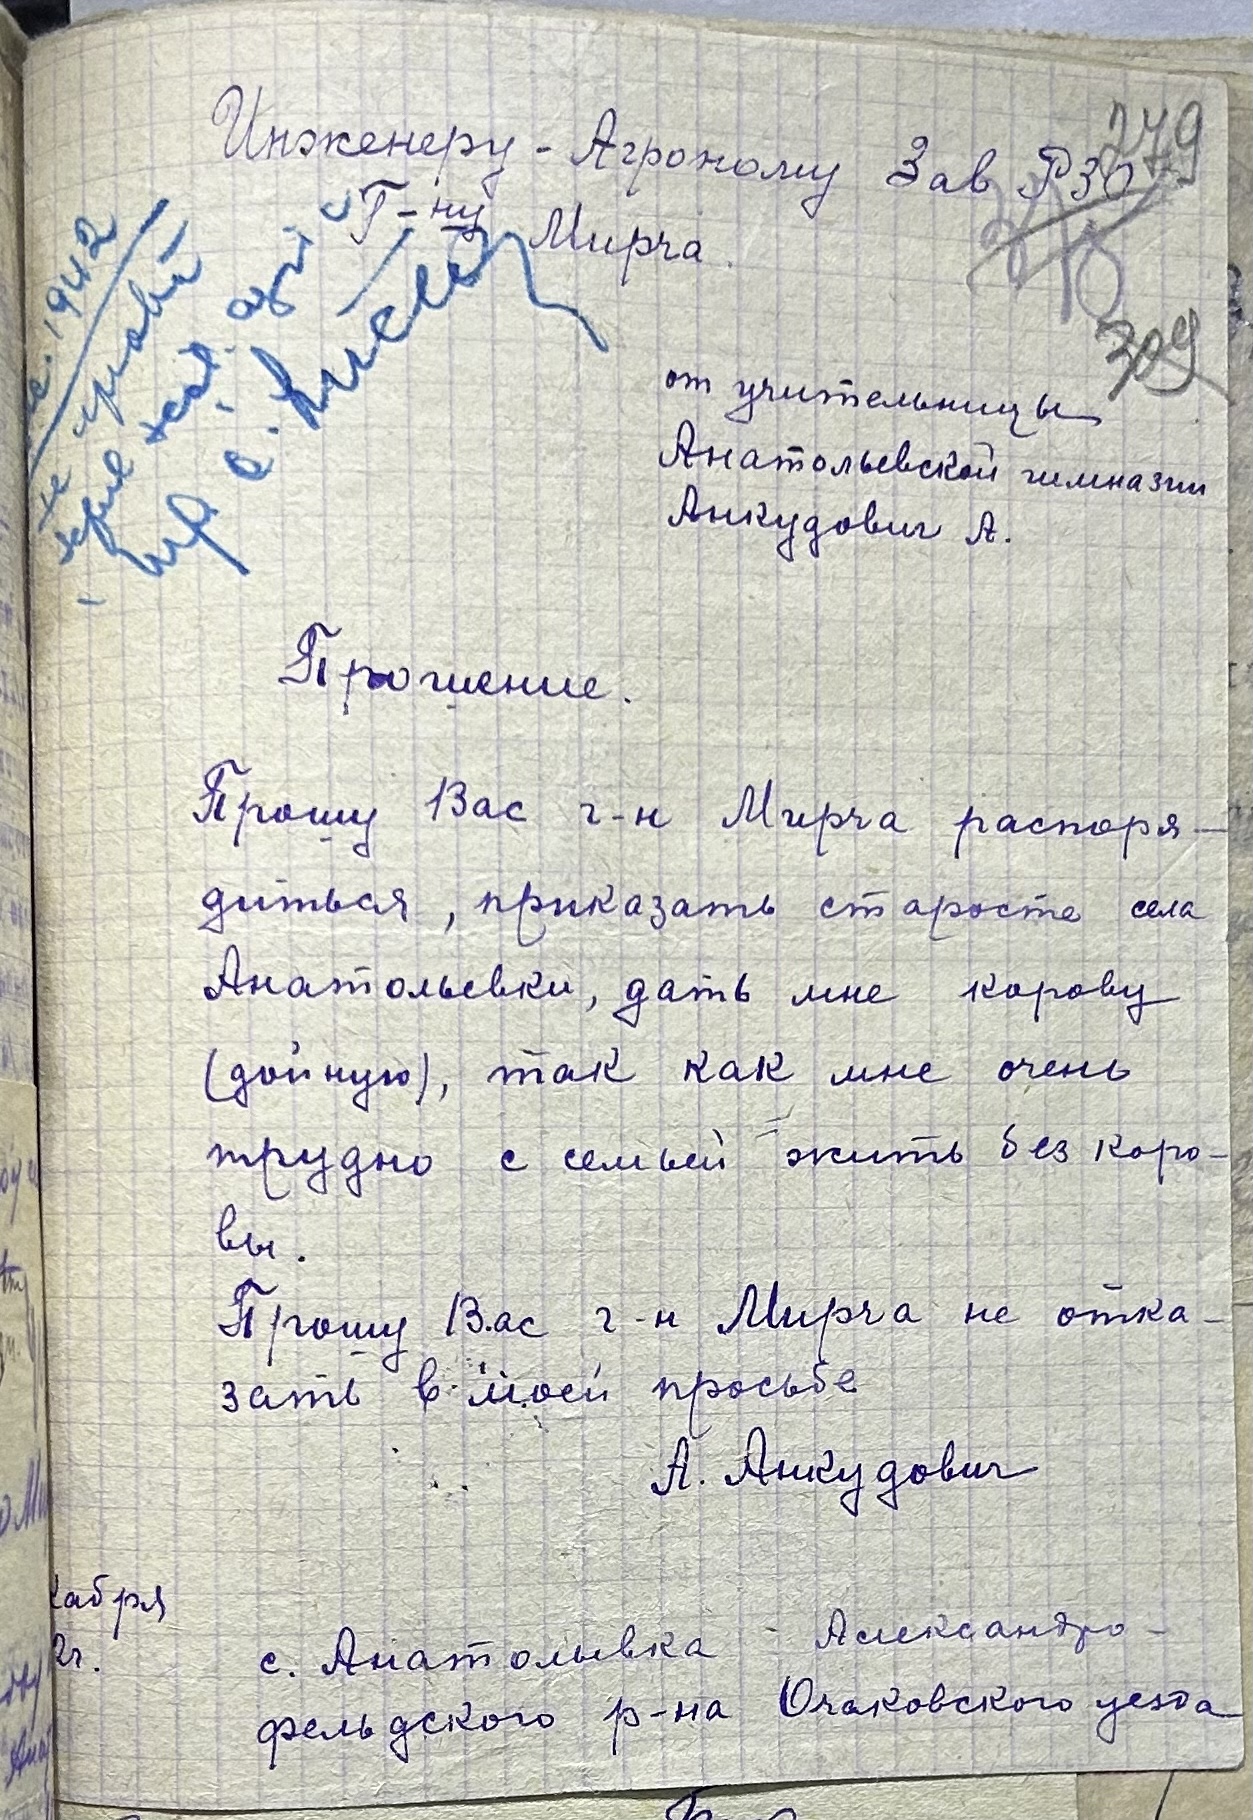 279
Инженеру - Агроному Зав РЗО
Г-ну Мирча.
309
1942
от учительницы
Анатольевской гимназии
Анкудович А.
Прошение.
Прошу Вас г-н Мирча распоря-
диться, приказать старосте села
Анатольевки, дать мне корову
(дойную), так как мне очень
трудно с семьей жить без коро-
вы.
Прошу Вас г-н Мирча не отка-
зать в моей просьбе
А. Анкудович
кабря
2г.
с. Анатольевка Александро-
фельдского р-на Очаковского уезда